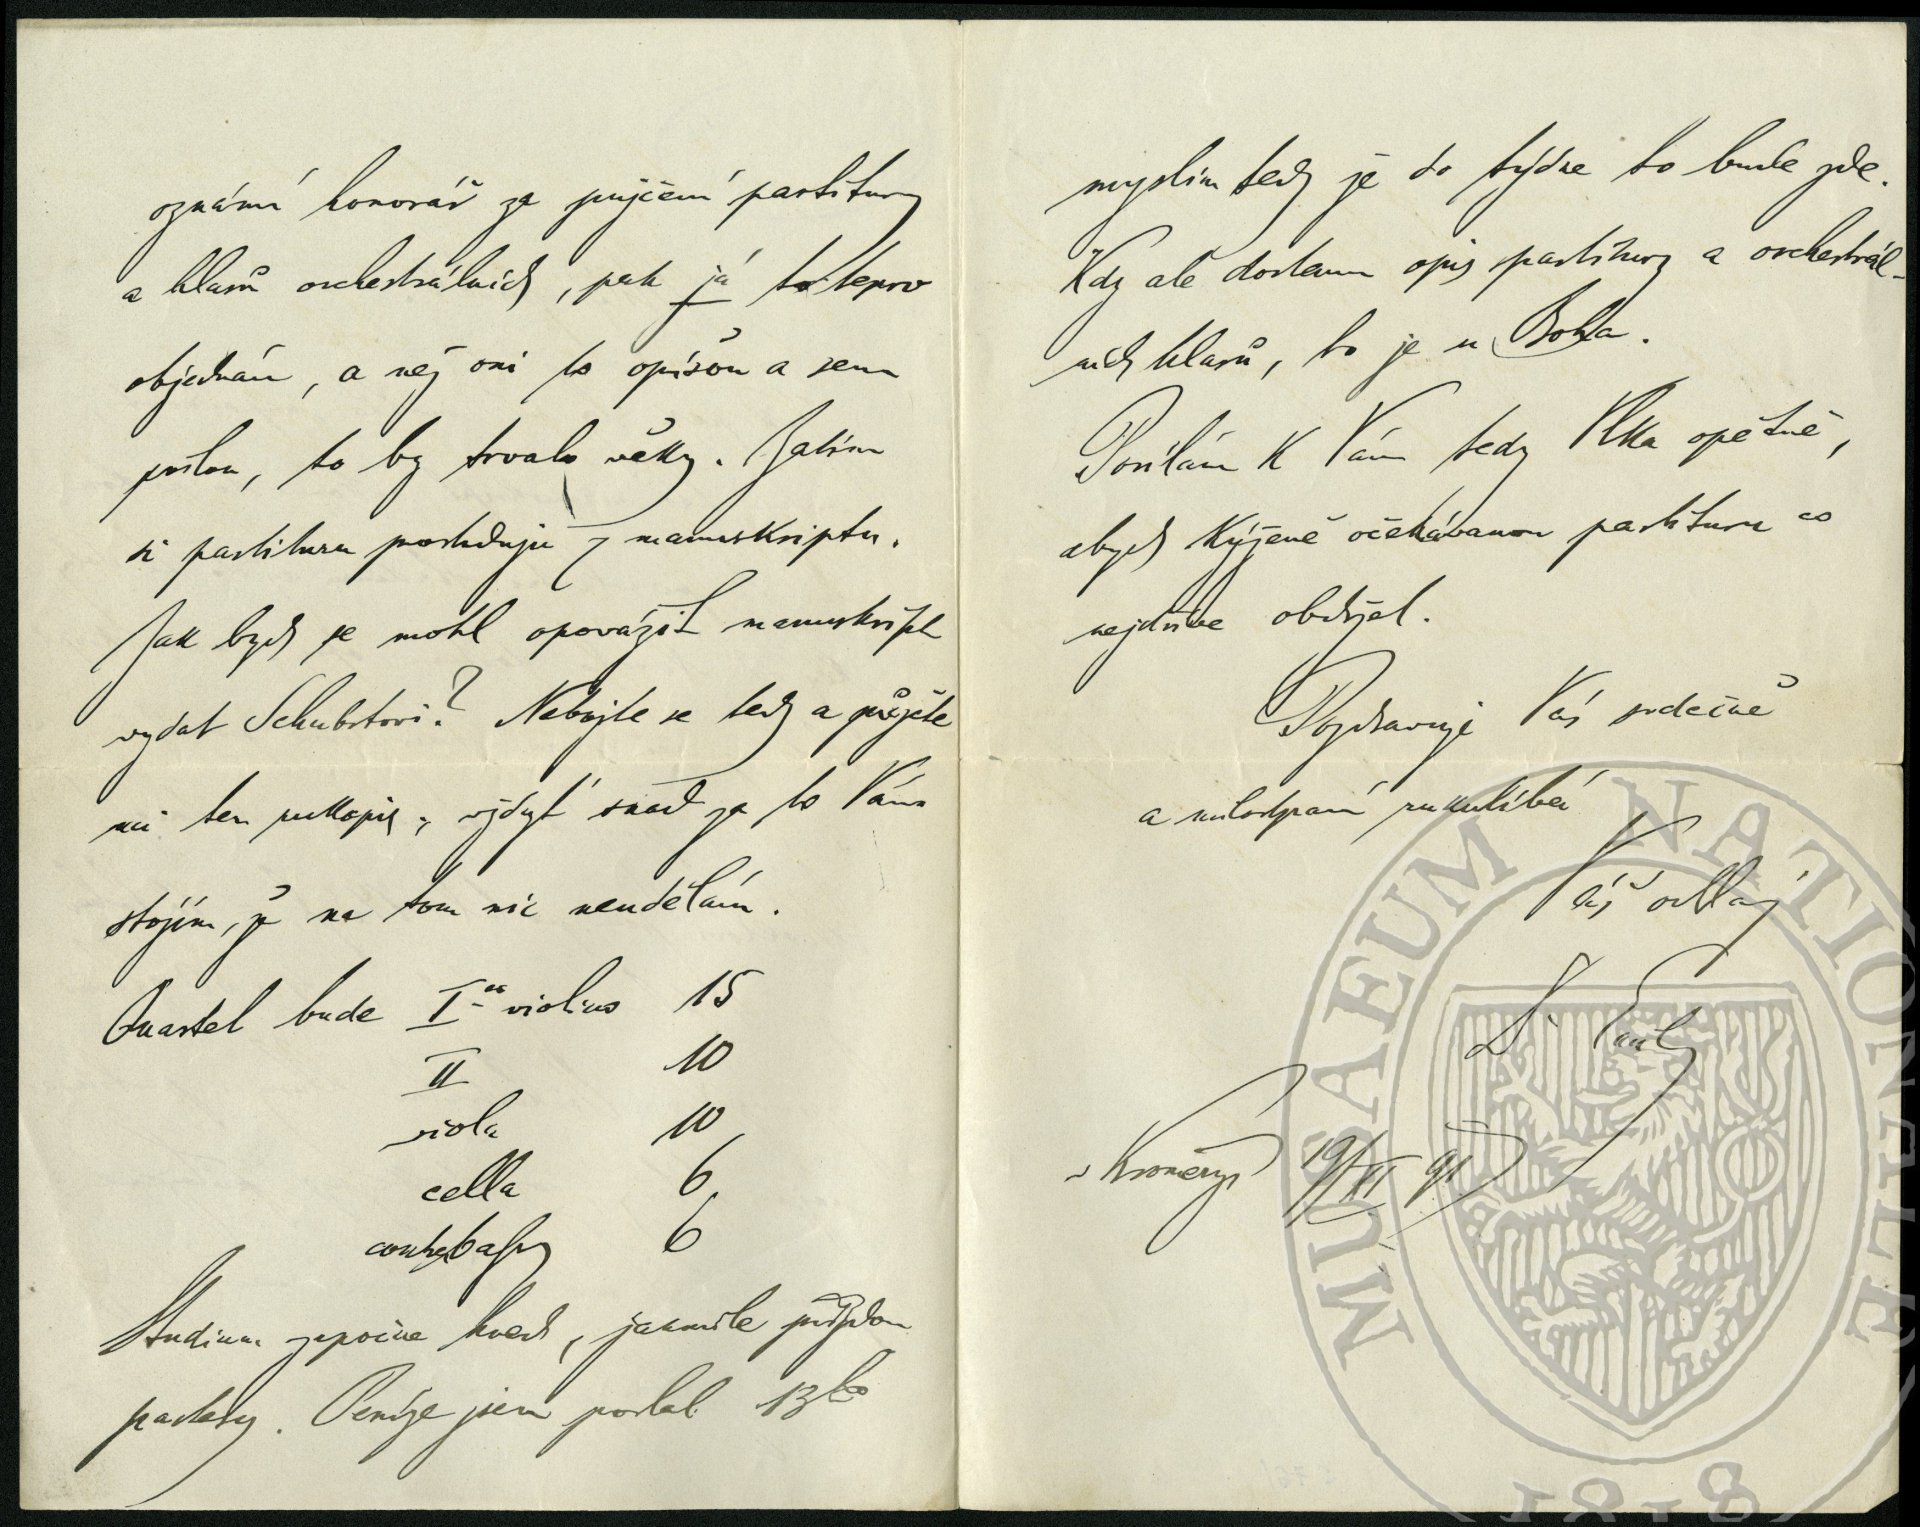 oznámí honorář za půjčení partitury
a hlasů orchestrálních, pak já to teprv
objednám, a než oni to opíšou a sem
pošlou, to by trvalo věky. Zatím
si partituru prostuduju z manuskriptu.
Jak bych se mohl opovážit manuskript
vydat Schubrtovi? Nebojte se tedy a půjčte
mi ten rukopis, vždyť snad za to Vám
stojím, že na tom nic neudělám.
Quartet bude I violino 15
II 10
viola 10
cella 6
contrabassy 6
Studium započne hned, jakmile přijdou
partesy. Peníze jsem poslal 13ho
myslím tedy že do týdne to bude zde.
Kdy ale dostanu opis partitury a orchestrál-
ních hlasů, to je u Boha.
Posílám k Vám tedy Vlka opětně,
abych kýženě očekávanou partituru co
nejdříve obdržel.
Pozdravuje Vás srdečně
a milostpaní rukulíbá
Váš oddaný
v Kroměříži 19/XI 91
MUSAEUM NATIONALE
1818